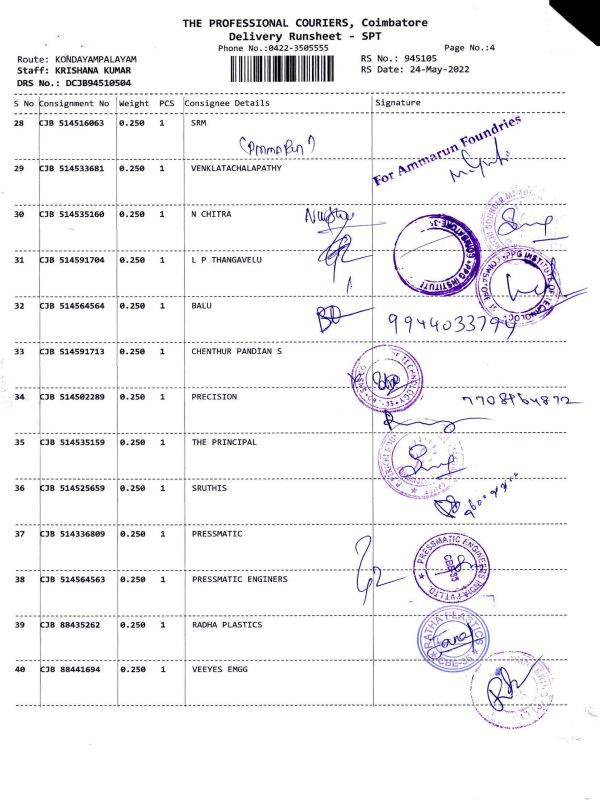 THE PROFESSIONAL COURIERS, Coimbatore
Delivery Runsheet - SPT
Phone No.:0422-3505555 Page No.:4
Route: KONDAYAMPALAYAM RS No.: 945105
Staff: KRISHANA KUMAR RS Date: 24-May-2022
DRS No.: DCJB94510504
S No Consignment No Weight PCS Consignee Details Signature
28 CJB 514516063 0.250 1 SRM
For Ammarun Foundries
29 CJB 514533681 0.250 1 VENKLATACHALAPATHY
30 CJB 514535160 0.250 1 N CHITRA
31 CJB 514591704 0.250 1 L P THANGAVELU
PPG INSTITUTE
PPG INSTITUTE OF TECHNOLOGY
32 CJB 514564564 0.250 1 BALU
33 CJB 514591713 0.250 1 CHENTHUR PANDIAN S
34 CJB 514502289 0.250 1 PRECISION
35 CJB 514535159 0.250 1 THE PRINCIPAL
36 CJB 514525659 0.250 1 SRUTHIS
37 CJB 514336809 0.250 1 PRESSMATIC
PRESSMATIC ENGINEERS INDIA PVT LTD.
CBE-35
38 CJB 514564563 0.250 1 PRESSMATIC ENGINERS
39 CJB 88435262 0.250 1 RADHA PLASTICS
RATHA PLASTICS
CBE-35
40 CJB 88441694 0.250 1 VEEYES EMGG